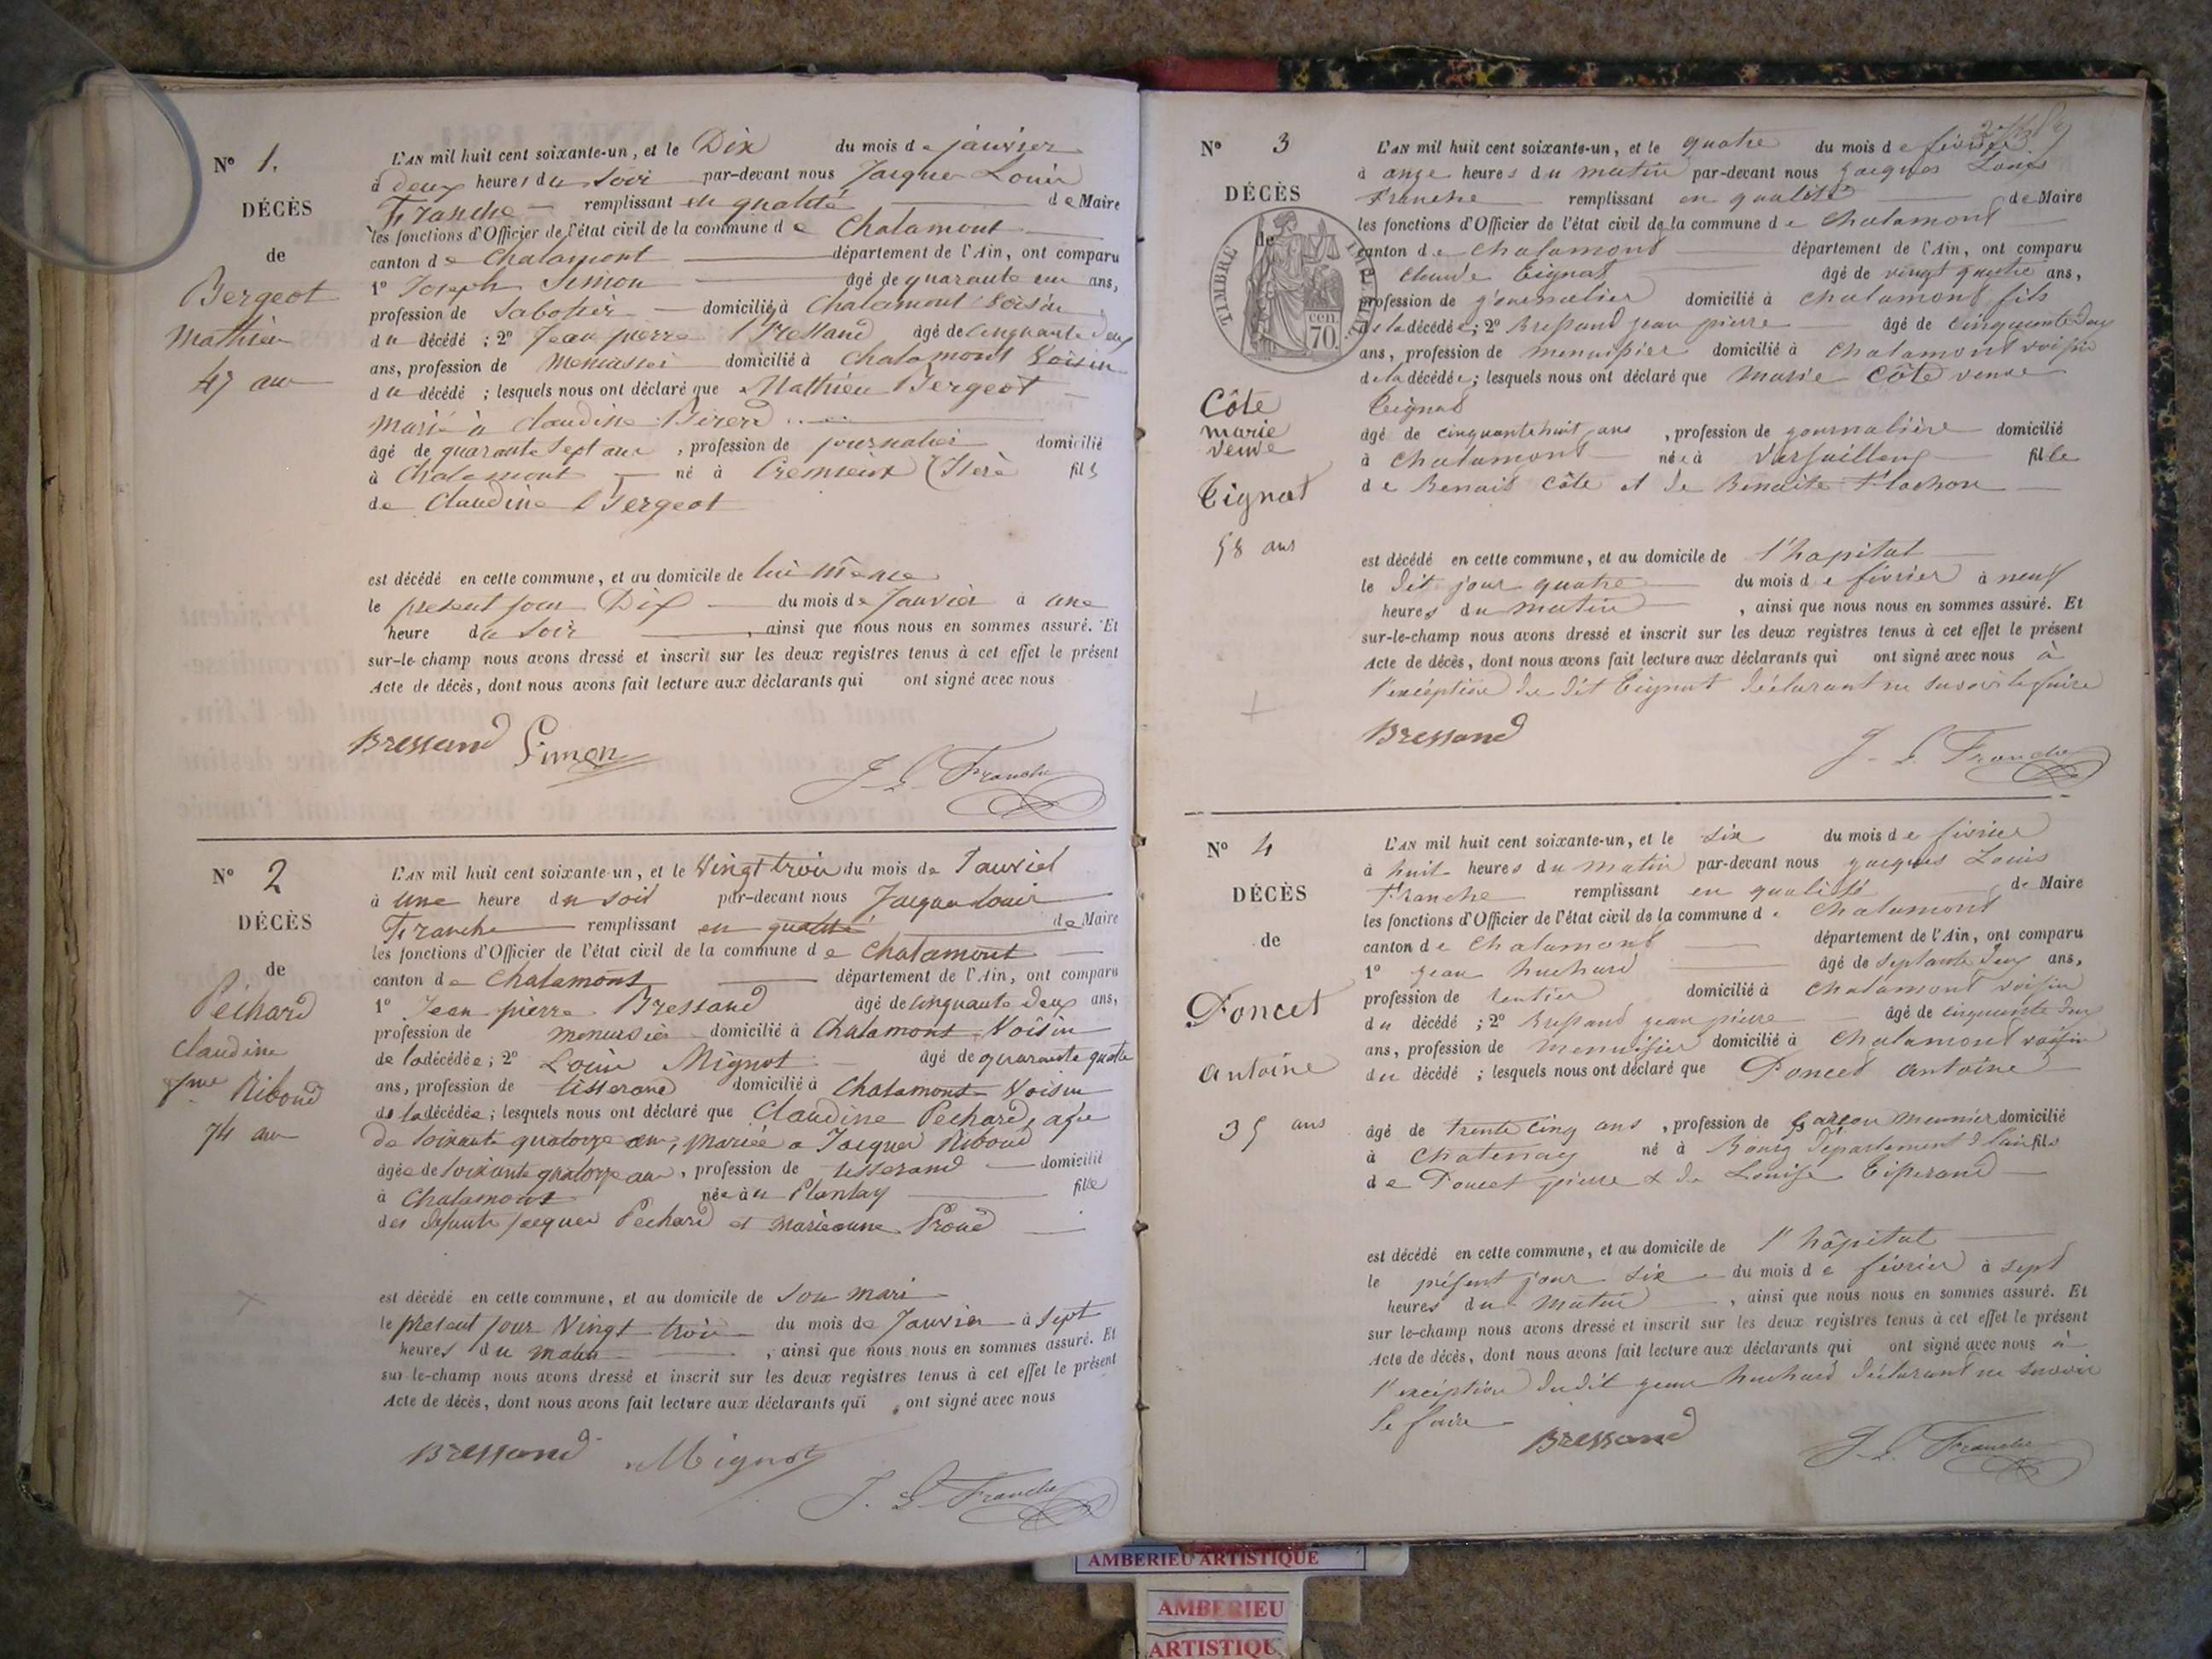 N° 1.
DÉCÈS
de
Bergeot
Mathieu
47 ans
L'AN mil huit cent soixante-un, et le Dix du mois de janvier
à deux heures du soir par-devant nous Jacques Louis
Franche remplissant en qualité de Maire
les fonctions d'Officier de l'état civil de la commune de Chalamont
canton de Chalamont département de l'Ain, ont comparu
1° Joseph Simon âgé de quarante un ans,
profession de Sabotier domicilié à Chalamont Voisin
du décédé ; 2° Jean pierre Bressand âgé de Cinquante deux
ans, profession de Menuisier domicilié à Chalamont Voisin
du décédé ; lesquels nous ont déclaré que Mathieu Bergeot
marié à Claudine
âgé de quarante Sept ans, profession de journalier domicilié
à Chalamont né à Cremieux (Isère fils
de Claudine Bergeot
est décédé en cette commune, et au domicile de lui même
le présent jour Dix du mois de Janvier à une
heure du Soir, ainsi que nous nous en sommes assuré. Et
sur-le-champ nous avons dressé et inscrit sur les deux registres tenus à cet effet le présent
Acte de décès, dont nous avons fait lecture aux déclarants qui ont signé avec nous
Bressand Simon
J. L. Franche
N° 2
DÉCÈS
de
Péchard
Claudine
fme Riboud
74 ans
L'AN mil huit cent soixante-un, et le Vingt trois du mois de Janvier
à une heure du soir par-devant nous Jacques Louis
Franche remplissant en qualité de Maire
les fonctions d'Officier de l'état civil de la commune de Chalamont
canton de Chalamont département de l'Ain, ont comparu
1° Jean pierre Bressand âgé de Cinquante deux ans,
profession de menuisier domicilié à Chalamont Voisin
de la décédée ; 2° Louis Mignot âgé de quarante quatre
ans, profession de tisserand domicilié à Chalamont Voisin
de la décédée ; lesquels nous ont déclaré que Claudine Pechard, agée
de Soixante quatorze ans, mariée a Jacques Riboud
âgée de Soixante quatorze ans, profession de tisserand domicilié
à Chalamont née au Plantay fille
des defunts jacques Pechard et marieanne Proud
est décédé en cette commune, et au domicile de son mari
le présent jour Vingt trois du mois de Janvier à sept
heures du matin, ainsi que nous nous en sommes assuré. Et
sur-le-champ nous avons dressé et inscrit sur les deux registres tenus à cet effet le présent
Acte de décès, dont nous avons fait lecture aux déclarants qui ont signé avec nous
Bressand Mignot
J. L. Franche
N° 3
DÉCÈS
de
TIMBRE IMPERIAL
70 cen
Côte
marie
veuve
Tignat
58 ans
L'AN mil huit cent soixante-un, et le quatre du mois de février
à onze heures du matin par-devant nous jacques Louis
Franche remplissant en qualité de Maire
les fonctions d'Officier de l'état civil de la commune de Chalamont
canton de Chalamont département de l'Ain, ont comparu
1° Claude Tignat âgé de vingt quatre ans,
profession de journalier domicilié à Chalamont fils
de la décédée ; 2° Bressand jean pierre âgé de cinquante deux
ans, profession de menuisier domicilié à Chalamont voisin
de la décédée ; lesquels nous ont déclaré que Marie Côte veuve
Tignat
âgé de cinquante huit ans, profession de journalière domicilié
à Chalamont née à Versailleux fille
de Benoit Côte et de Benoite Flachon
est décédé en cette commune, et au domicile de l'hopital
le dit jour quatre du mois de février à neuf
heures du matin, ainsi que nous nous en sommes assuré. Et
sur-le-champ nous avons dressé et inscrit sur les deux registres tenus à cet effet le présent
Acte de décès, dont nous avons fait lecture aux déclarants qui ont signé avec nous à
l'exception du dit Tignat déclarant ne savoir le faire
Bressand
J. L. Franche
N° 4
DÉCÈS
de
Poncet
antoine
35 ans
L'AN mil huit cent soixante-un, et le six du mois de février
à huit heures du matin par-devant nous jacques Louis
Franche remplissant en qualité de Maire
les fonctions d'Officier de l'état civil de la commune de Chalamont
canton de Chalamont département de l'Ain, ont comparu
1° jean huchard âgé de septante deux ans,
profession de rentier domicilié à Chalamont voisin
du décédé ; 2° Bressand jean pierre âgé de cinquante deux
ans, profession de Menuisier domicilié à Chalamont voisin
du décédé ; lesquels nous ont déclaré que Poncet antoine
âgé de trente cinq ans, profession de garçon meunier domicilié
à Chatenay né à Bourg département de l'ain fils
de Poncet pierre & de Louise Tisserand
est décédé en cette commune, et au domicile de l'hôpital
le présent jour six du mois de février à sept
heures du matin, ainsi que nous nous en sommes assuré. Et
sur le-champ nous avons dressé et inscrit sur les deux registres tenus à cet effet le présent
Acte de décès, dont nous avons fait lecture aux déclarants qui ont signé avec nous à
l'exception dudit jean huchard déclarant ne savoir
le faire
Bressand
J. L. Franche
AMBERIEU ARTISTIQUE
AMBERIEU
ARTISTIQU